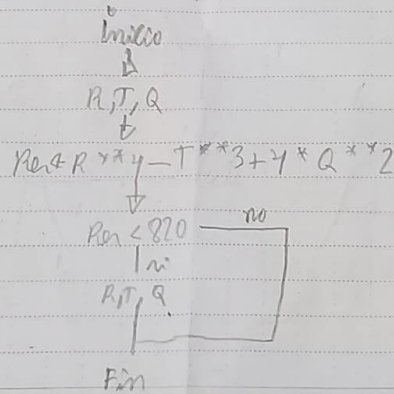 Inicio
R, T, Q
Res ← R ** 4 - T ** 3 + 4 * Q ** 2
Res < 820
no
si
R, T, Q
Fin